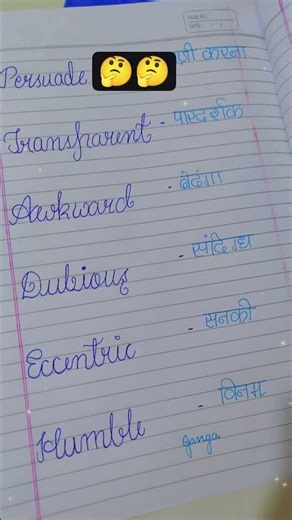 PAGE NO.
DATE:
Persuade 🤔🤔 जी करना
Transparent - पारदर्शक
Awkward - बेढंगा
Dubious - संदिग्ध
Eccentric - सनकी
Humble - विनम्र
Ganga